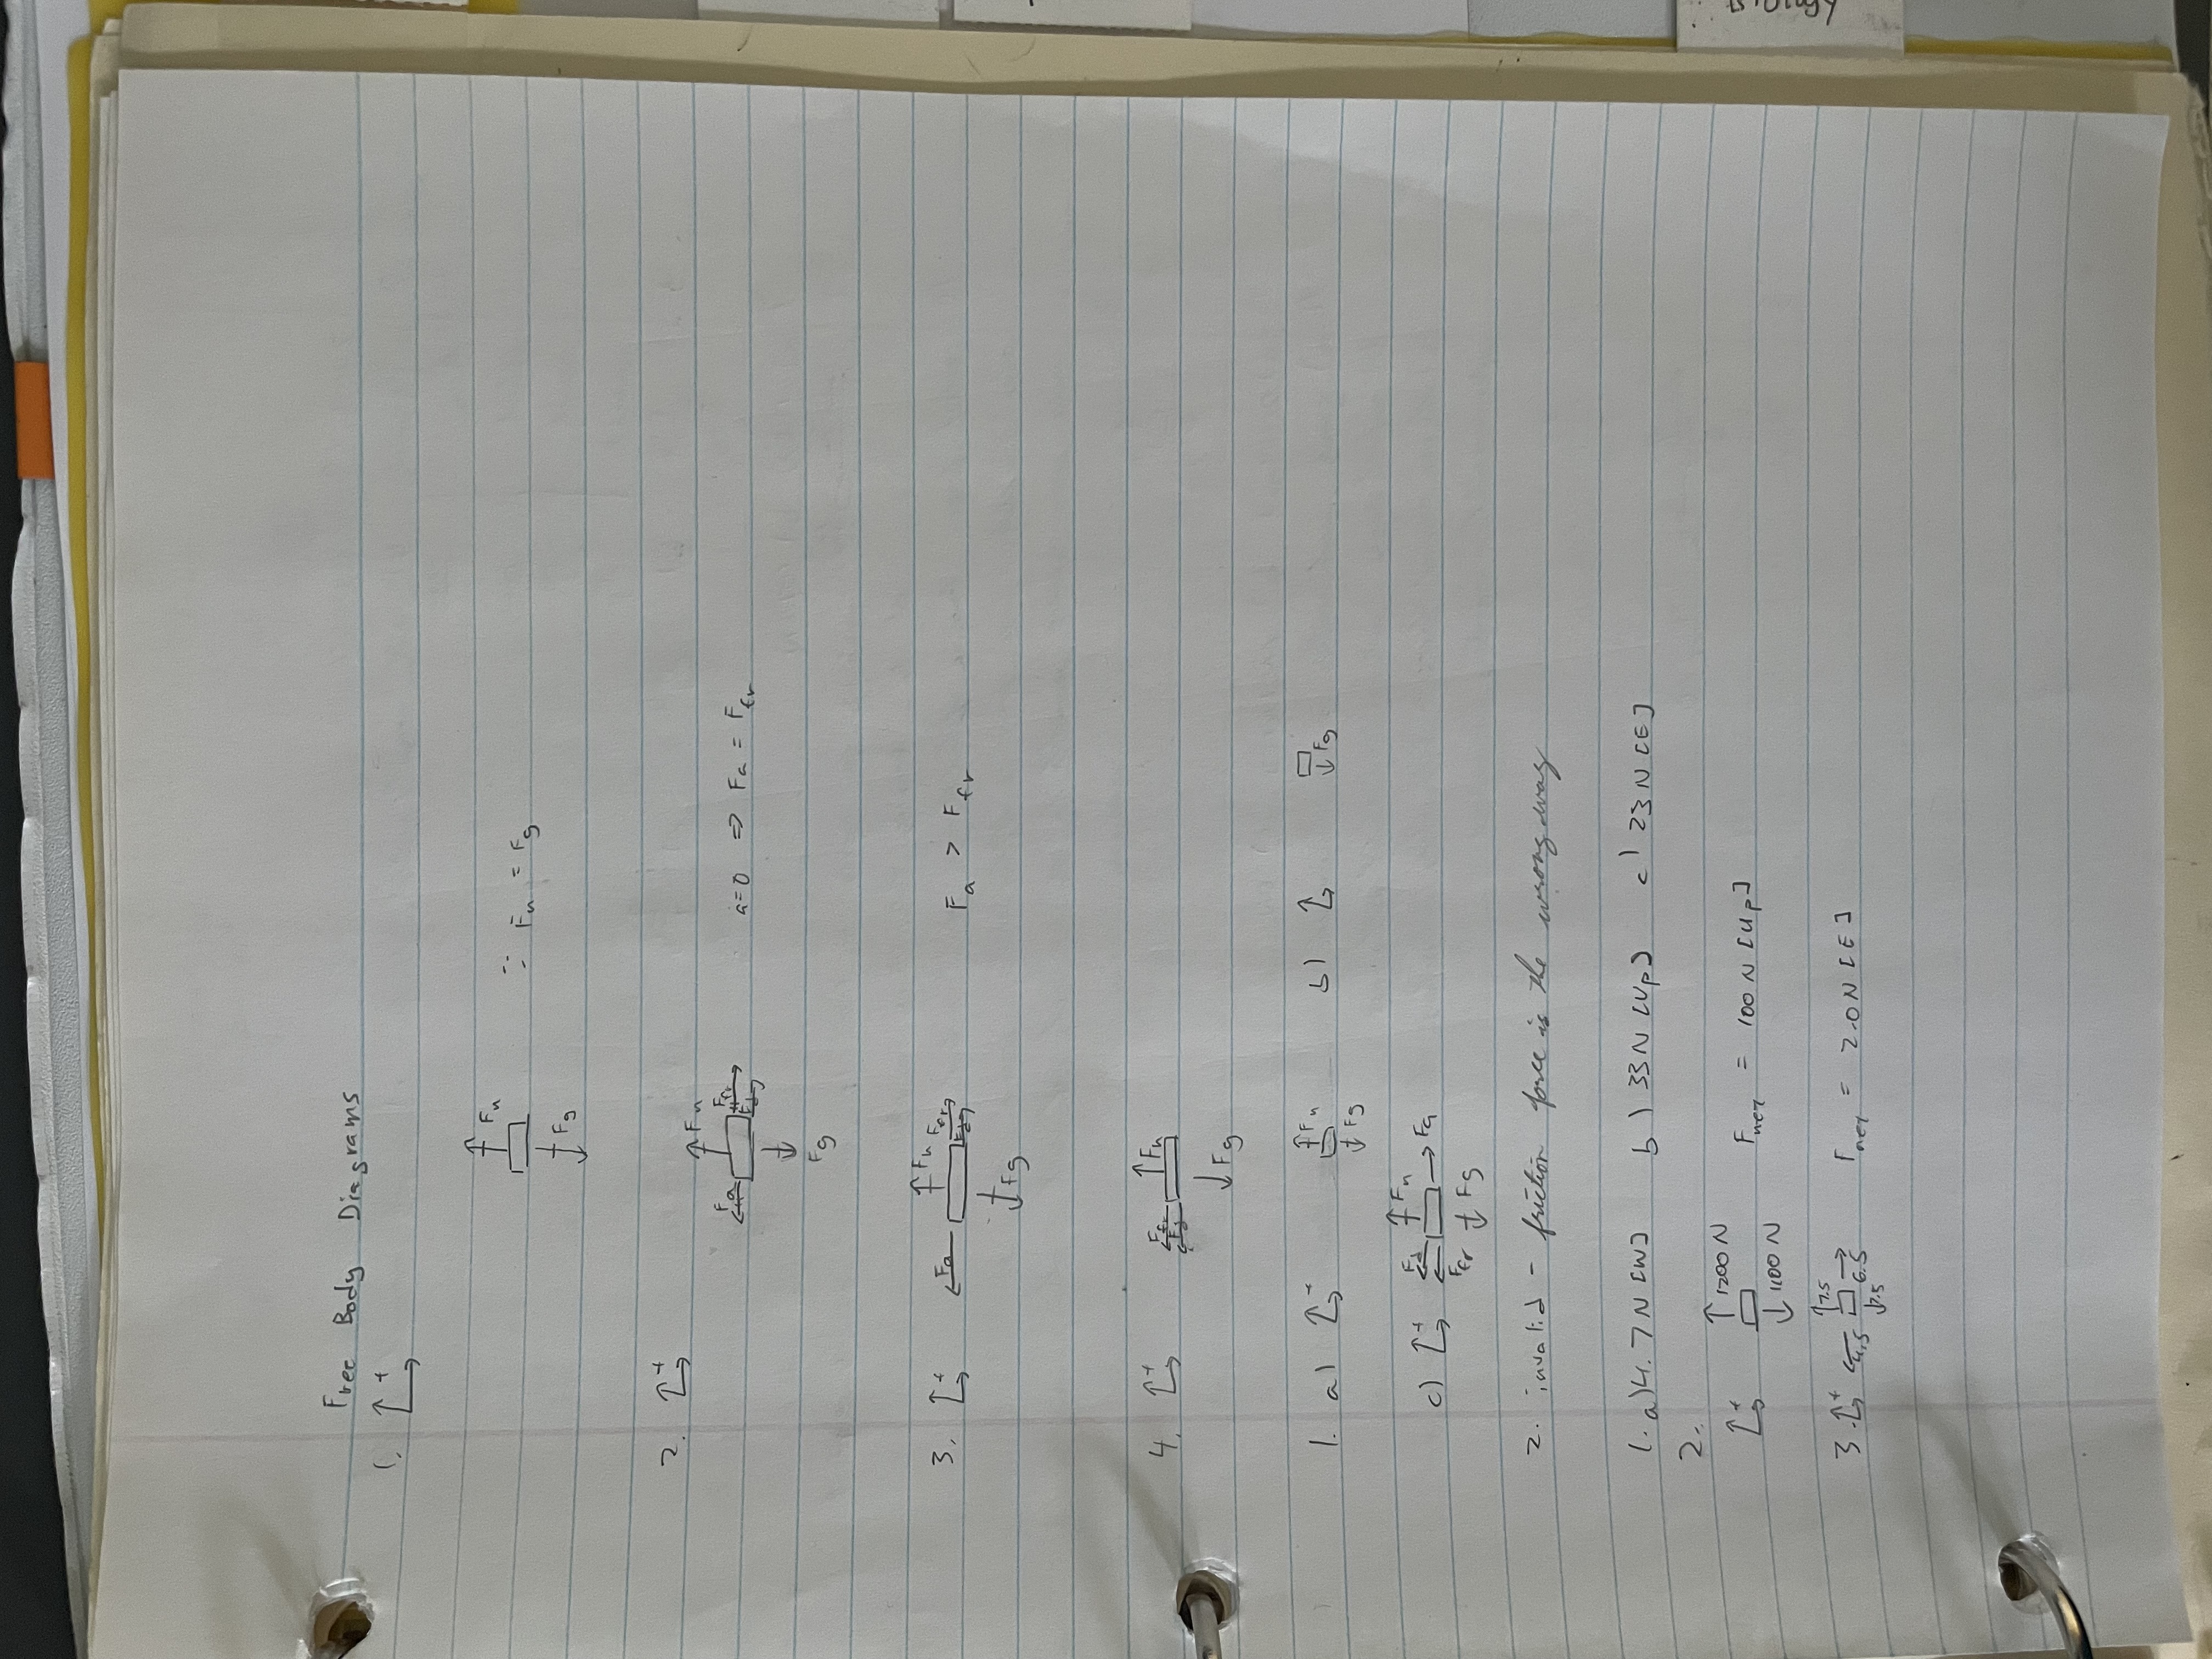 Free Body Diagrams
1. +
Fn
∵ Fn = Fg
Fg
2. +
Fn
Fa Ffr
Fd
a=0 ⇒ Fa = Ffr
Fg
3. +
Fn
Fa Ffr
Fd
Fa > Ffr
Fg
4. +
Ffr Fn
Fd
Fg
1. a) + Fn b) Fg
Fg
c) + Fd Fn Fa
Ffr Fg
2. invalid - friction force is the wrong way
1. a) 4.7 N [W] b) 33 N [Up] c) 23 N [E]
2.
+ 1200 N Fnet = 100 N [Up]
1100 N
3. + 7.5
4.5 6.5 Fnet = 2.0 N [E]
7.5